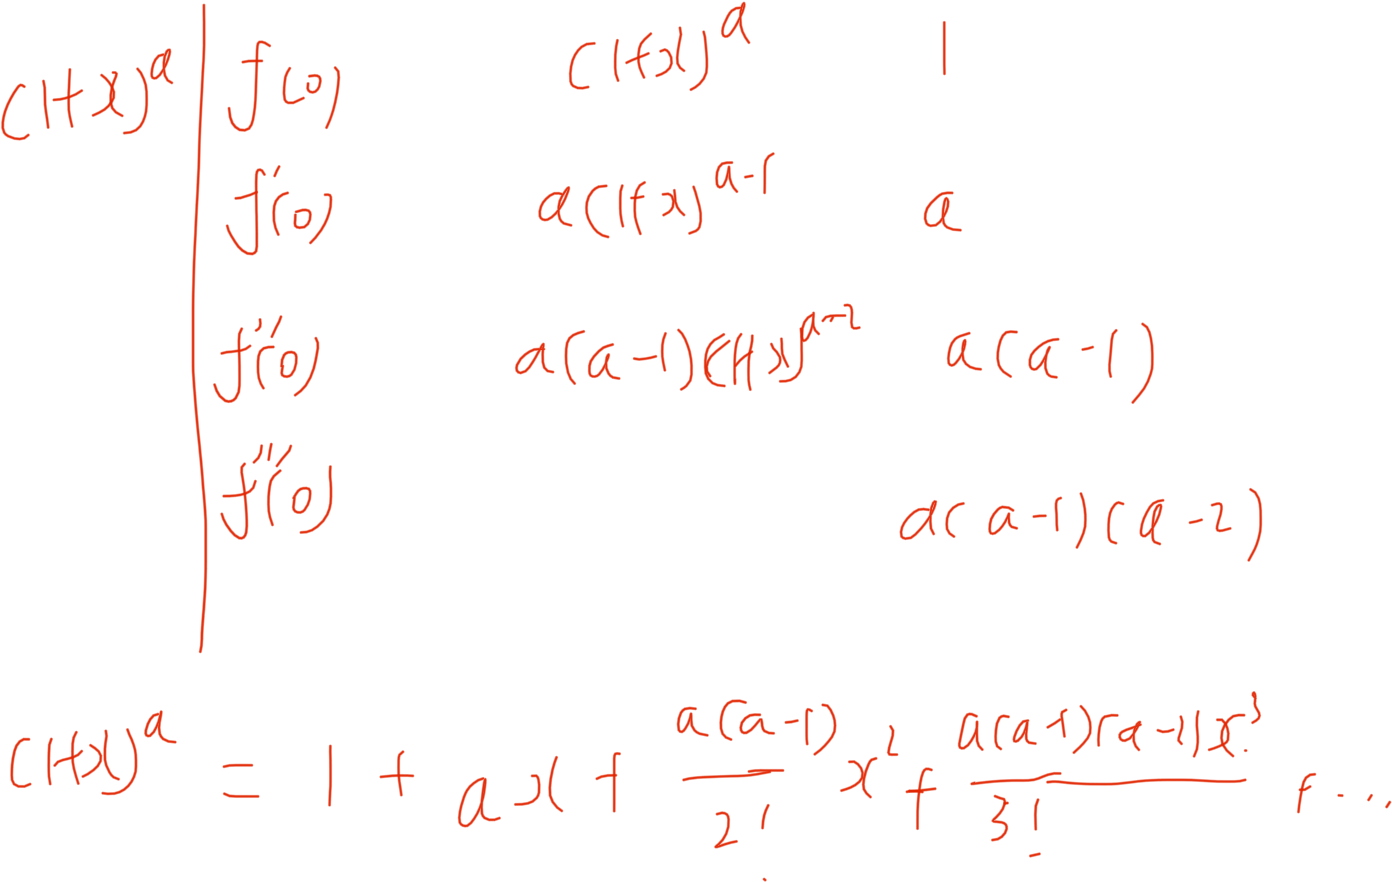 (1+x)^a | f(0) (1+x)^a 1
f'(0) a(1+x)^{a-1} a
f''(0) a(a-1)(1+x)^{a-2} a(a-1)
f'''(0) a(a-1)(a-2)
(1+x)^a = 1 + ax + \frac{a(a-1)}{2!} x^2 + \frac{a(a-1)(a-2)x^3}{3!} + ...